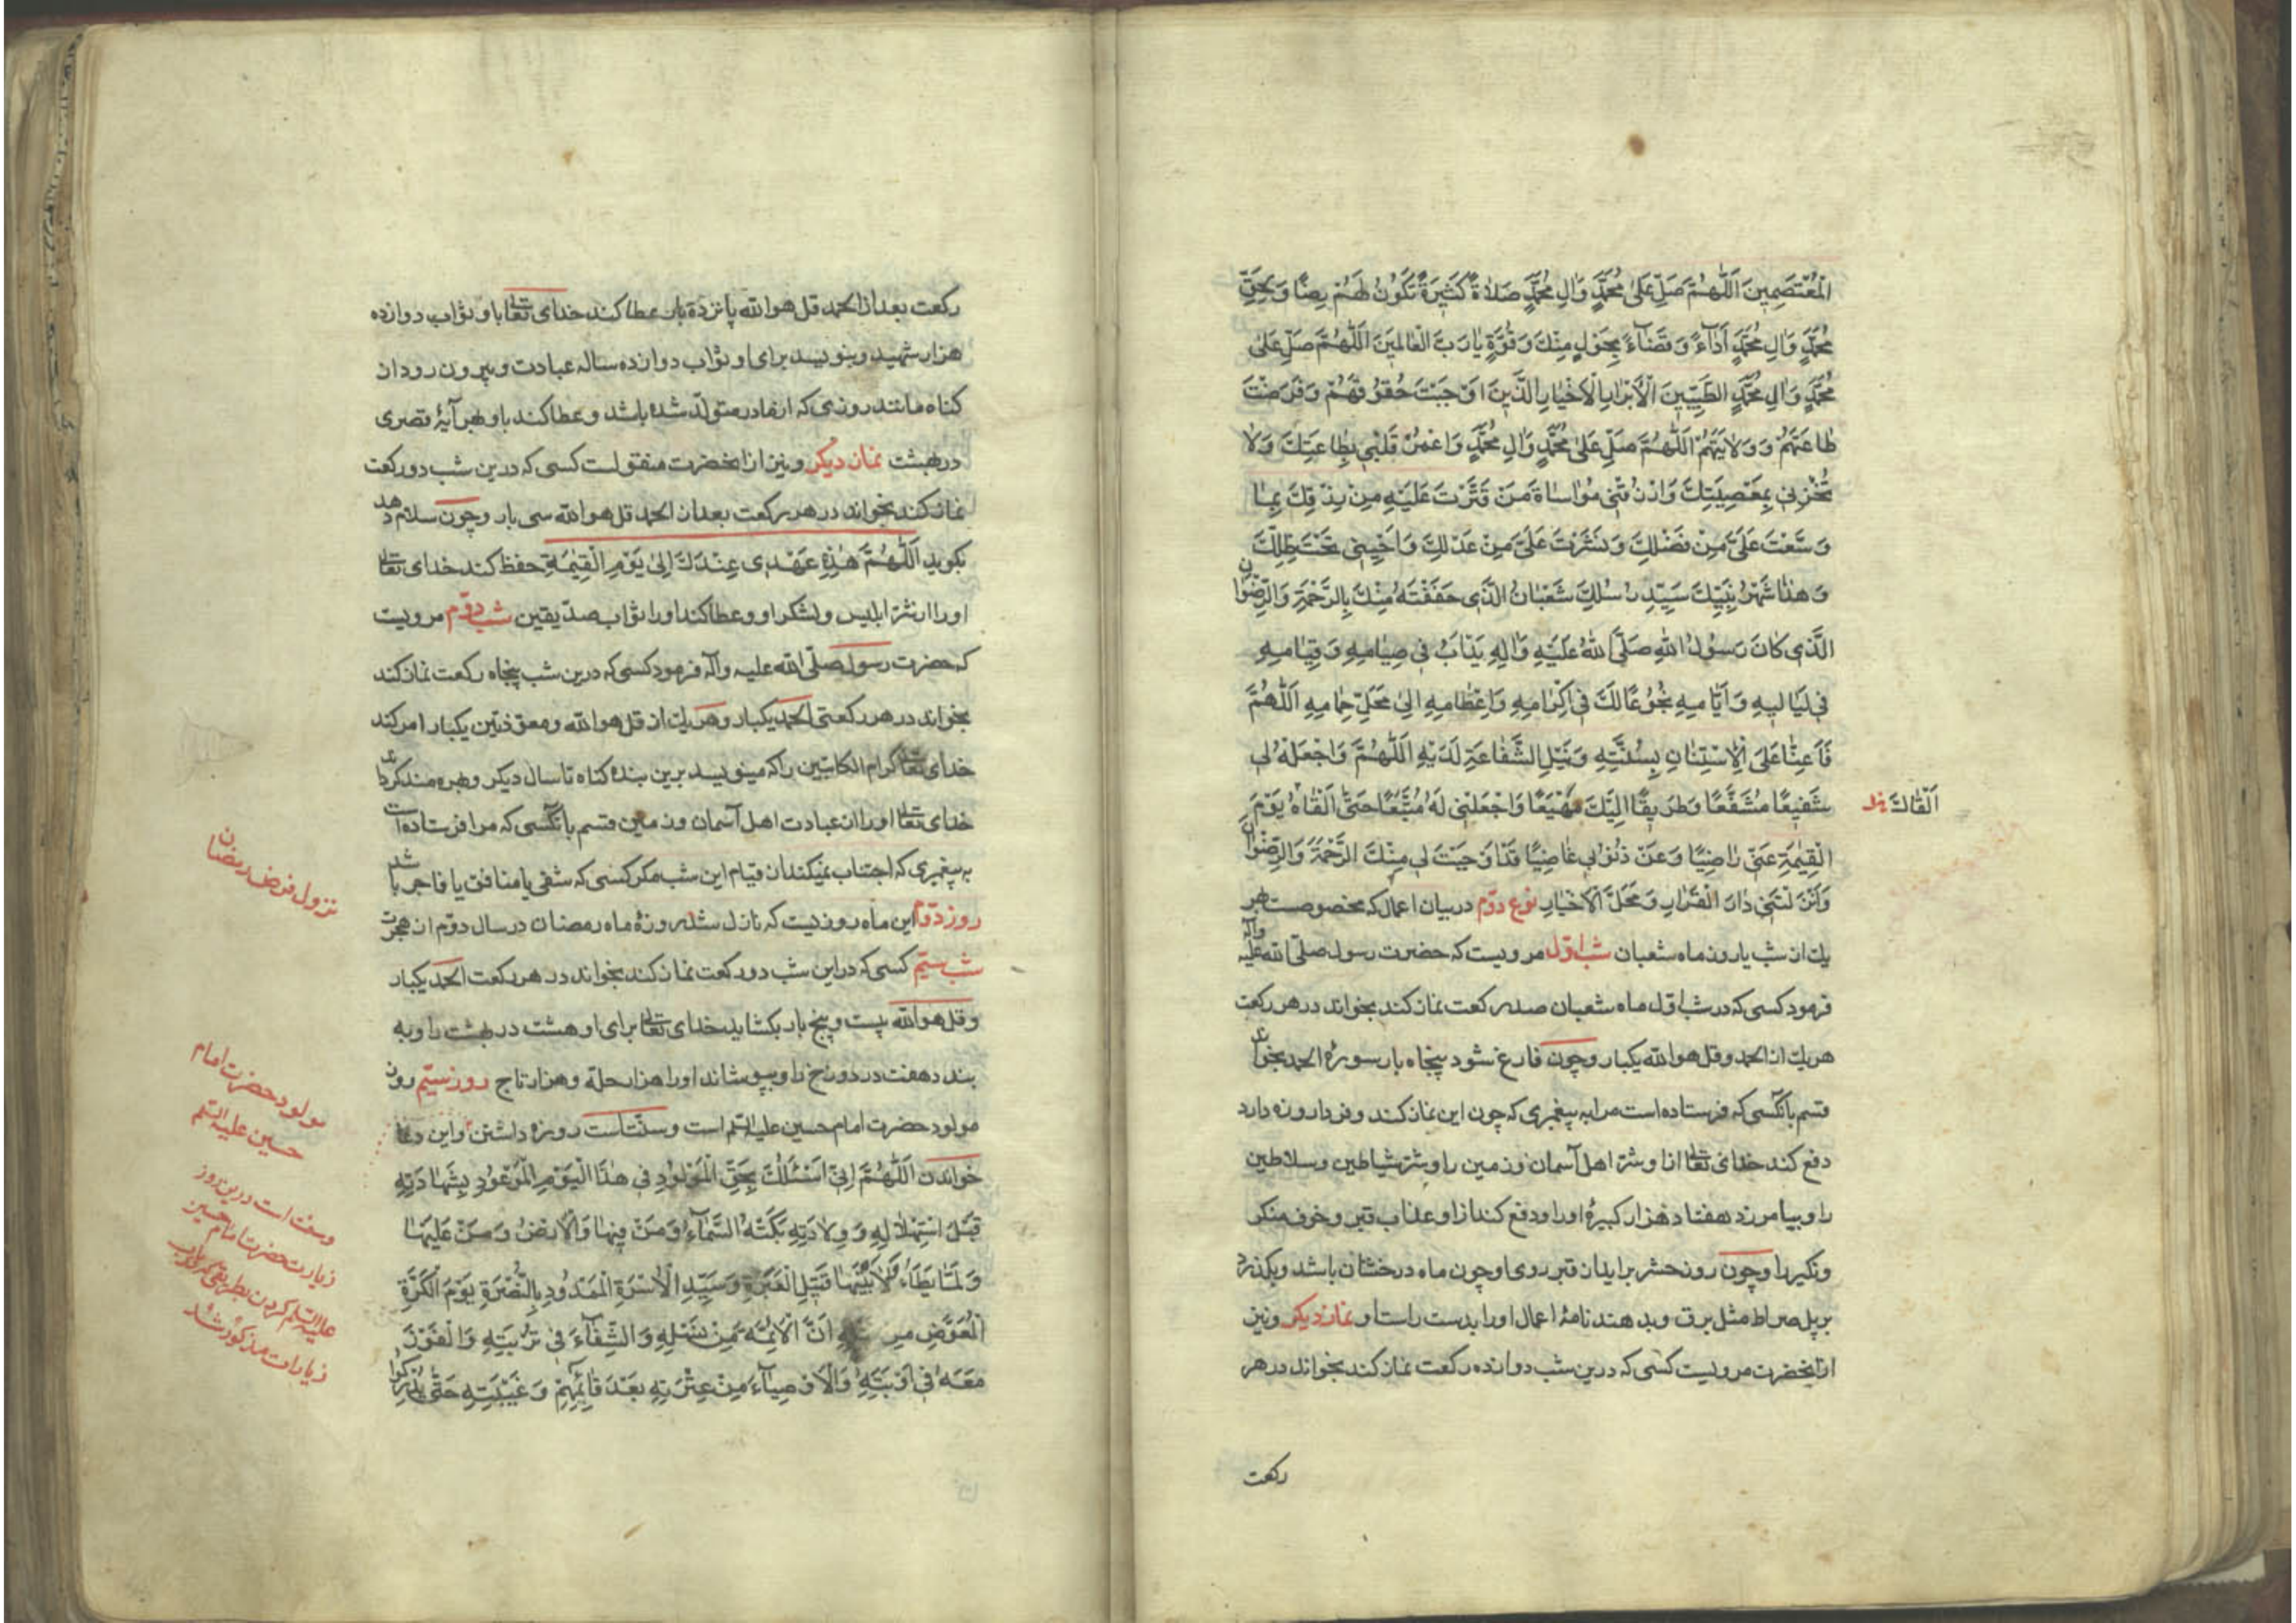 الْمُعْتَصِمِينَ اَللّٰهُمَّ صَلِّ عَلىٰ مُحَمَّدٍ وَاٰلِ مُحَمَّدٍ صَلاٰةً كَثِيرَةً تَكُونُ لَهُمْ رِضًا وَبِحَقِّ
مُحَمَّدٍ وَاٰلِ مُحَمَّدٍ اَدٰآءً وَقَضٰآءً بِحَوْلٍ مِنْكَ وَقُوَّةٍ يٰا رَبَّ الْعٰالَمِينَ اَللّٰهُمَّ صَلِّ عَلىٰ
مُحَمَّدٍ وَاٰلِ مُحَمَّدٍ الطَّيِّبِينَ الْاَبْرٰارِ الْاَخْيٰارِ الَّذِينَ اَوْجَبْتَ حُقُوقَهُمْ وَفَرَضْتَ
طٰاعَتَهُمْ وَوِلاٰيَتَهُمْ اَللّٰهُمَّ صَلِّ عَلىٰ مُحَمَّدٍ وَاٰلِ مُحَمَّدٍ وَاعْمُرْ قَلْبِي بِطٰاعَتِكَ وَلاٰ
تُخْزِنِي بِمَعْصِيَتِكَ وَارْزُقْنِي مُوٰاسٰاةَ مَنْ قَتَّرْتَ عَلَيْهِ مِنْ رِزْقِكَ بِمٰا
وَسَّعْتَ عَلَيَّ مِنْ فَضْلِكَ وَنَشَرْتَ عَلَيَّ مِنْ عَدْلِكَ وَاَحْيِنِي تَحْتَ ظِلِّكَ
وَهٰذٰا شَهْرُ نَبِيِّكَ سَيِّدِ رُسُلِكَ شَعْبٰانُ الَّذِي حَفَفْتَهُ مِنْكَ بِالرَّحْمَةِ وَالرِّضْوٰانِ
الَّذِي كٰانَ رَسُولُ اللّٰهِ صَلَّى اللّٰهُ عَلَيْهِ وَاٰلِهِ يَدْاَبُ فِي صِيٰامِهِ وَقِيٰامِهِ
فِي لَيٰالِيهِ وَاَيّٰامِهِ بُخُوعًا لَكَ فِي اِكْرٰامِهِ وَاِعْظٰامِهِ اِلىٰ مَحَلِّ حِمٰامِهِ اَللّٰهُمَّ
فَاَعِنّٰا عَلَى الْاِسْتِنٰانِ بِسُنَّتِهِ وَنَيْلِ الشَّفٰاعَةِ لَدَيْهِ اَللّٰهُمَّ وَاجْعَلْهُ لِي
شَفِيعًا مُشَفَّعًا وَطَرِيقًا اِلَيْكَ مَهْيَعًا وَاجْعَلْنِي لَهُ مُتَّبِعًا حَتّٰى اَلْقٰاهُ يَوْمَ
اَلْقٰاكَ
الْقِيٰمَةِ عَنِّي رٰاضِيًا وَعَنْ ذُنُوبِي غٰاضِيًا قَدْ اَوْجَبْتَ لِي مِنْكَ الرَّحْمَةَ وَالرِّضْوٰانَ
وَاَنْزَلْتَنِي دٰارَ الْقَرٰارِ وَمَحَلَّ الْاَخْيٰارِ نوع دوّم در بيان اعمال كه مخصوصست بهر
يك از شب يا روز ماه شعبان شب اوّل مرويست كه حضرت رسول صلّى الله عليه وآله
فرمود كسى كه در شب اوّل ماه شعبان صد ركعت نماز كند بخواند در هر ركعت
هريك از الحمد و قل هو الله يكبار و چون فارغ شود پنجاه بار سورۀ الحمد بخواند
قسم بانكسى كه فرستاده است مرا به پيغمبرى كه چون اين نماز كند و فردا روزه دارد
دفع كند خداى تعالى ازو شرّ اهل آسمان و زمين را و شرّ شياطين و سلاطين
را و بيامرزد هفتاد هزار كبيرۀ او را و دفع كند از او عذاب قبر و خوف منكر
و نكير را و چون روز حشر برايد از قبر روى او چون ماه درخشان باشد و بكذرد
بر پل صراط مثل برق و بدهند نامۀ اعمال او را بدست راست او نماز ديكر و نيز
از انحضرت مرويست كسى كه درين شب دوازده ركعت نماز كند بخواند در هر
ركعت
ركعت بعد از الحمد قل هو الله پانزده بار عطا كند خداى تعالى باو ثواب دوازده
هزار شهيد و بنويسد براى او ثواب دوازده ساله عبادت و بيرون رود از
كناه مانند روزى كه از مادر متولّد شده باشد و عطا كند باو بهر آيۀ قصرى
در بهشت نماز ديكر و نيز از انحضرت منقولست كسى كه درين شب دو ركعت
نماز كند بخواند در هر ركعت بعد از الحمد قل هو الله سى بار و چون سلام دهد
بكويد اَللّٰهُمَّ هٰذِهِ عَهْدِى عِنْدَكَ اِلىٰ يَوْمِ الْقِيٰمَةِ حفظ كند خداى تعالى
او را از شرّ ابليس و لشكر او و عطا كند او را ثواب صدّيقين شب دوّم مرويست
كه حضرت رسول صلّى الله عليه وآله فرمود كسى كه درين شب پنجاه ركعت نماز كند
بخواند در هر ركعتى الحمد يكبار و هريك از قل هو الله و معوّذتين يكبار امر كند
خداى تعالى كرام الكاتبين را كه مينويسد برين بنده كناه تا سال ديكر و بهره مند كرداند
خداى تعالى او را از عبادت اهل آسمان و زمين قسم بانكسى كه مرا فرستاده است
به پيغمبرى كه اجتناب نميكند از قيام اين شب مكر كسى كه شقى يا منافق يا فاجر باشد
روز دوّم اين ماه روزيست كه نازل شد روزۀ ماه رمضان در سال دوّم از هجرت
نزول فرض رمضان
شب سيّم كسى كه در اين شب دو ركعت نماز كند بخواند در هر ركعت الحمد يكبار
و قل هو الله بيست و پنج بار بكشايد خداى تعالى براى او هشت در بهشت را و به
بندد هفت در دوزخ را و بپوشاند او را هزار حلّه و هزار تاج روز سيّم روز
مولود حضرت امام حسين عليه السّلم است و سنّت است روزه داشتن و اين دعا
مولود حضرت امام
حسين عليه السّلم
خواندن اَللّٰهُمَّ اِنِّي اَسْئَلُكَ بِحَقِّ الْمَوْلُودِ فِي هٰذَا الْيَوْمِ الْمَوْعُودِ بِشَهٰادَتِهِ
قَبْلَ اسْتِهْلاٰلِهِ وَوِلاٰدَتِهِ بَكَتْهُ السَّمٰآءُ وَمَنْ فِيهٰا وَالْاَرْضُ وَمَنْ عَلَيْهٰا
وَلَمّٰا يَطَاْ لاٰبَتَيْهٰا قَتِيلِ الْعَبْرَةِ وَسَيِّدِ الْاُسْرَةِ الْمَمْدُودِ بِالنُّصْرَةِ يَوْمَ الْكَرَّةِ
الْمُعَوَّضِ مِنْ اَنَّ الْاَئِمَّةَ مِنْ نَسْلِهِ وَالشِّفٰآءَ فِي تُرْبَتِهِ وَالْفَوْزَ
مَعَهُ فِي اَوْبَتِهِ وَالْاَوْصِيٰآءَ مِنْ عِتْرَتِهِ بَعْدَ قٰائِمِهِمْ وَغَيْبَتِهِ حَتّٰى
و سنت است درين روز
زيارت حضرت امام حسين
عليه السّلم كردن بطريقى كه در باب
زيارات مذكور شد